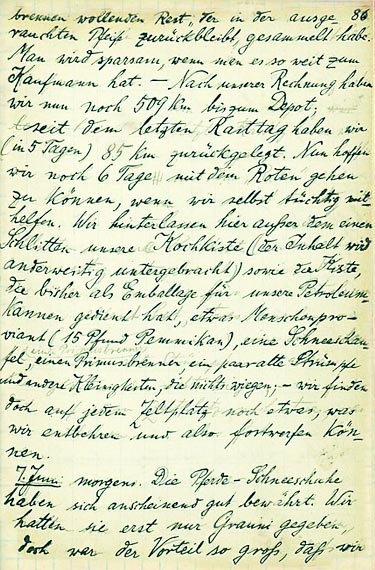 brennen wollenden Rest, der in der ausge- 86
rauchten Pfeife zurückbleibt, gesammelt habe.
Man wird sparsam, wenn man es so weit zum
Kaufmann hat. — Nach unserer Rechnung haben
wir nun noch 509 km bis zum Depot,
seit dem letzten Rasttag haben wir
(in 5 Tagen) 85 km zurückgelegt. Nun hoffen
wir noch 6 Tage mit dem Roten gehen
zu können, wenn wir selbst tüchtig mit-
helfen. Wir hinterlassen hier außer dem einen
Schlitten unsere Kochkiste (der Inhalt wird
anderweitig untergebracht) sowie die Kiste,
die bisher als Emballage für unsere Petroleum-
kannen gedient hat, etwas Menschenpro-
viant (15 Pfund Pemmikan), eine Schneeschau-
fel, einen Primusbrenner, ein paar alte Strümpfe
und andere Kleinigkeiten, die nichts wiegen; — wir finden
doch auf jedem Zeltplatz noch etwas, was
wir entbehren und also fortwerfen kön-
nen.
7. Juni morgens. Die Pferde-Schneeschuhe
haben sich anscheinend gut bewährt. Wir
hatten sie erst nur Grauni gegeben,
doch war der Vorteil so groß, daß wir